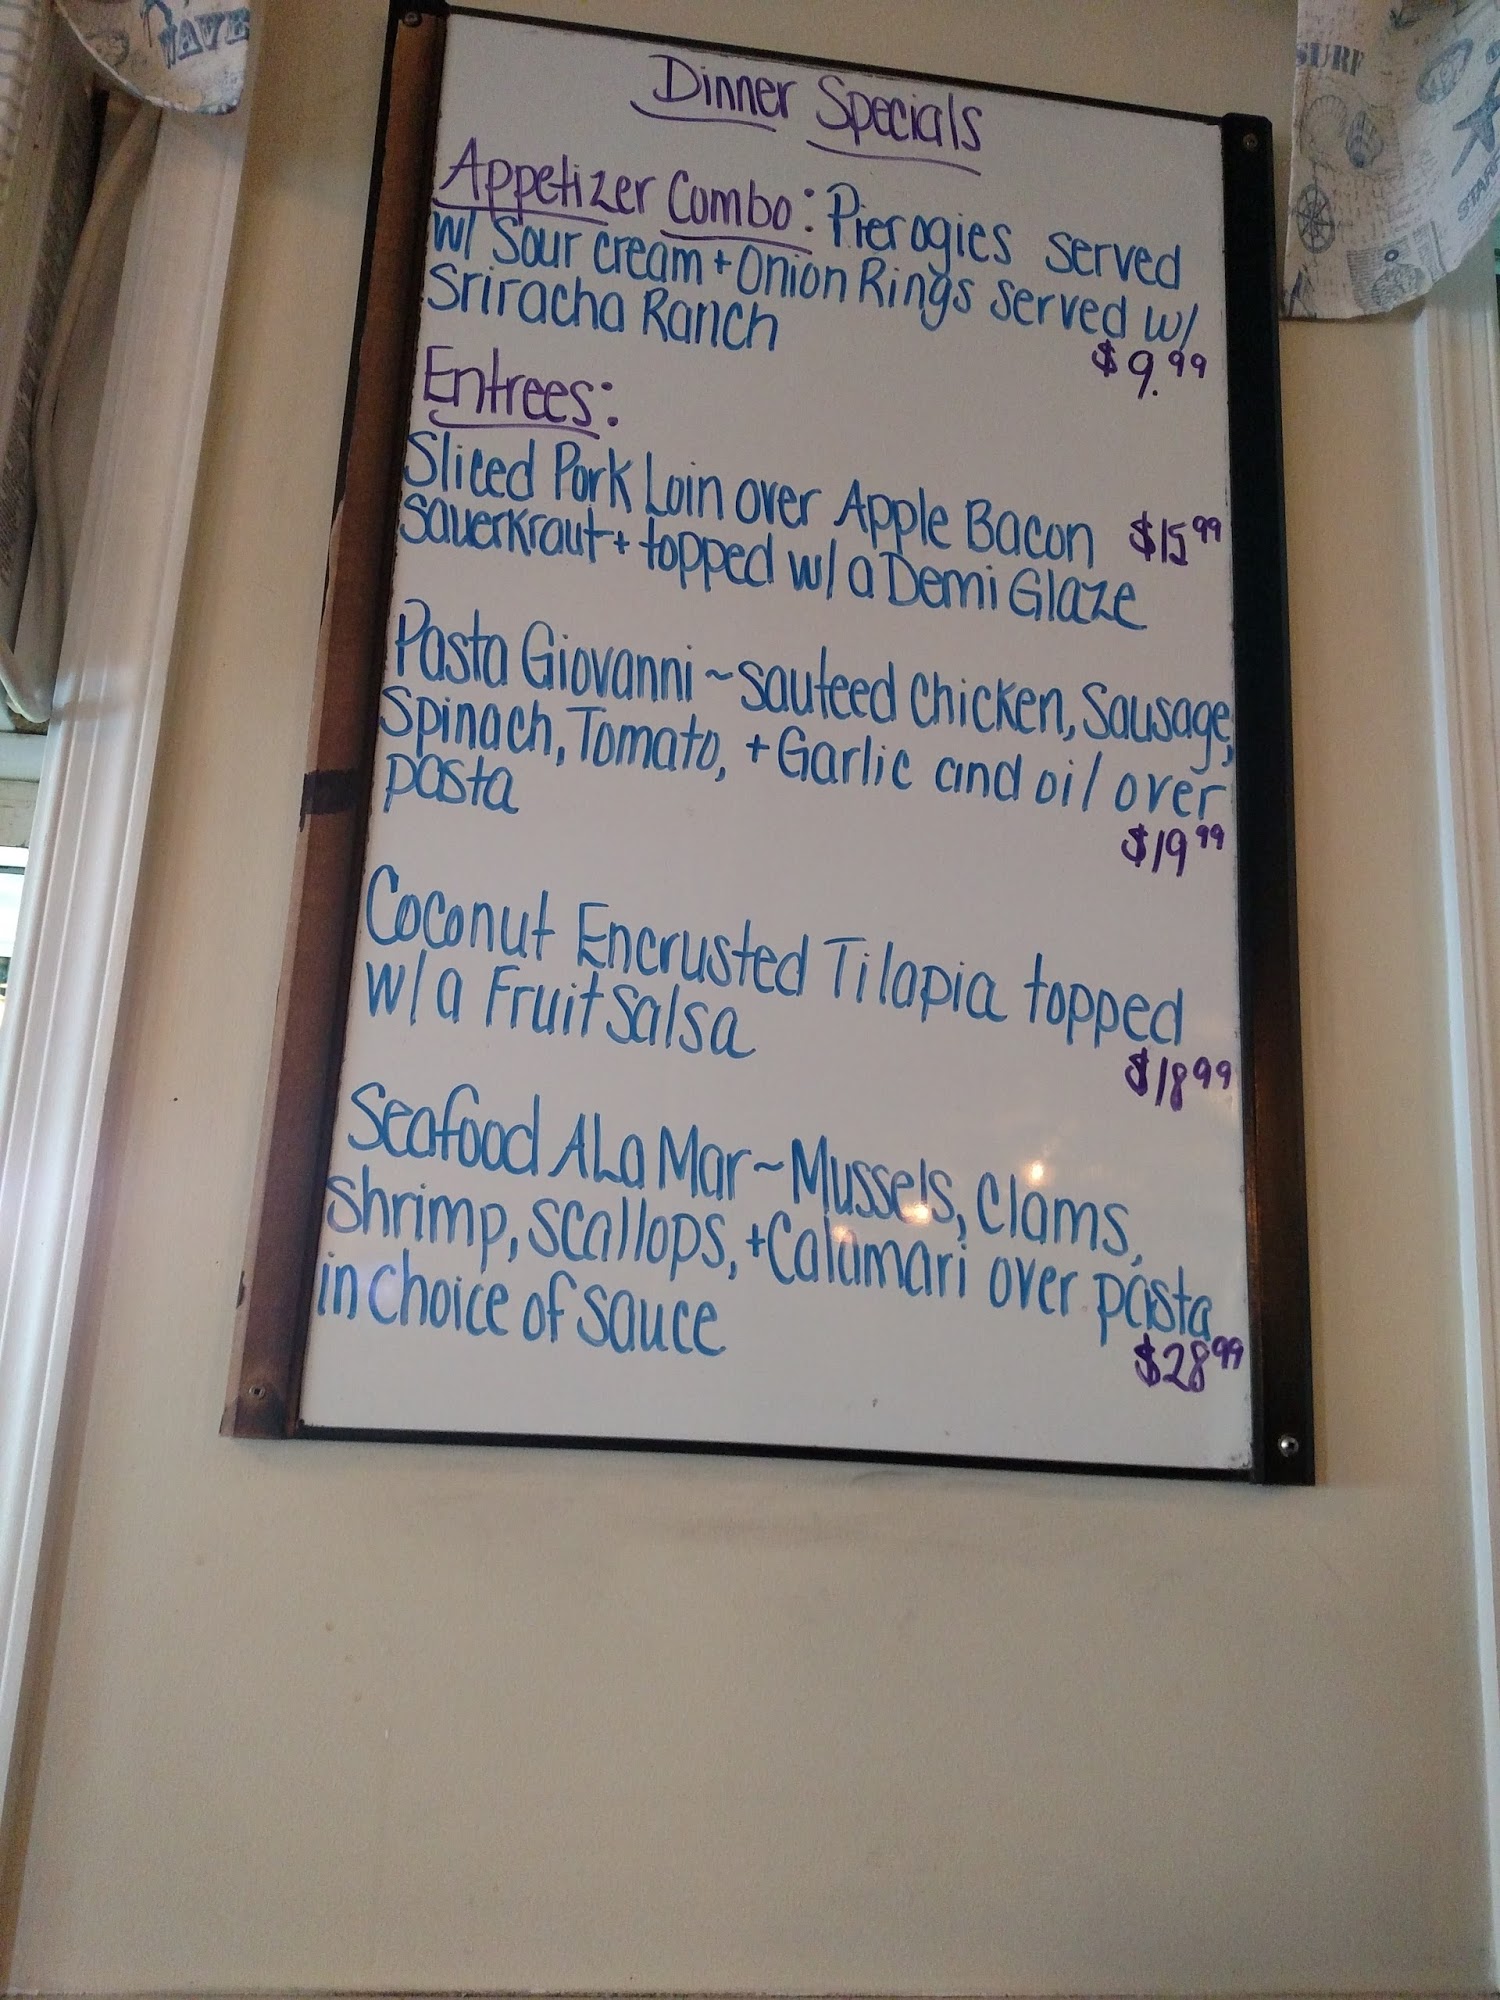 WAVE
SURF
STAR
Dinner Specials
Appetizer Combo: Pierogies served
w/ Sour cream + Onion Rings served w/
Sriracha Ranch
$9.99
Entrees:
Sliced Pork Loin over Apple Bacon $15.99
Sauerkraut + topped w/ a Demi Glaze
Pasta Giovanni ~ Sauteed Chicken, Sausage,
Spinach, Tomato, + Garlic and oil over
pasta
$19.99
Coconut Encrusted Tilapia topped
w/ a Fruit Salsa
$18.99
Seafood A La Mar ~ Mussels, Clams,
Shrimp, Scallops, + Calamari over pasta
in choice of sauce
$28.99